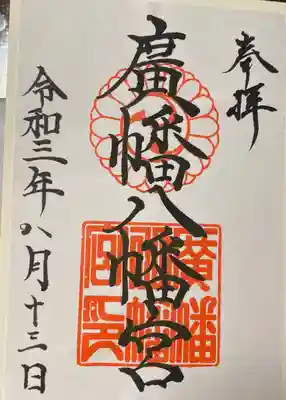 奉拝
廣幡八幡宮
令和三年八月十三日